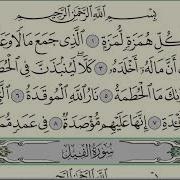 بِسْمِ اللَّهِ الرَّحْمَٰنِ الرَّحِيمِ
كُلِّ هُمَزَةٍ لُّمَزَةٍ ١ الَّذِي جَمَعَ مَالًا وَعَ
أَنَّ مَالَهُ أَخْلَدَهُ ٣ كَلَّا لَيُنبَذَنَّ فِي الْحُطَ
كَ مَا الْحُطَمَةُ ٥ نَارُ اللَّهِ الْمُوقَدَةُ ٦
ـِٔدَةِ ٧ إِنَّهَا عَلَيْهِم مُّؤْصَدَةٌ ٨ فِي عَمَدٍ مُّمَ
سُورَةُ الْفِيلِ